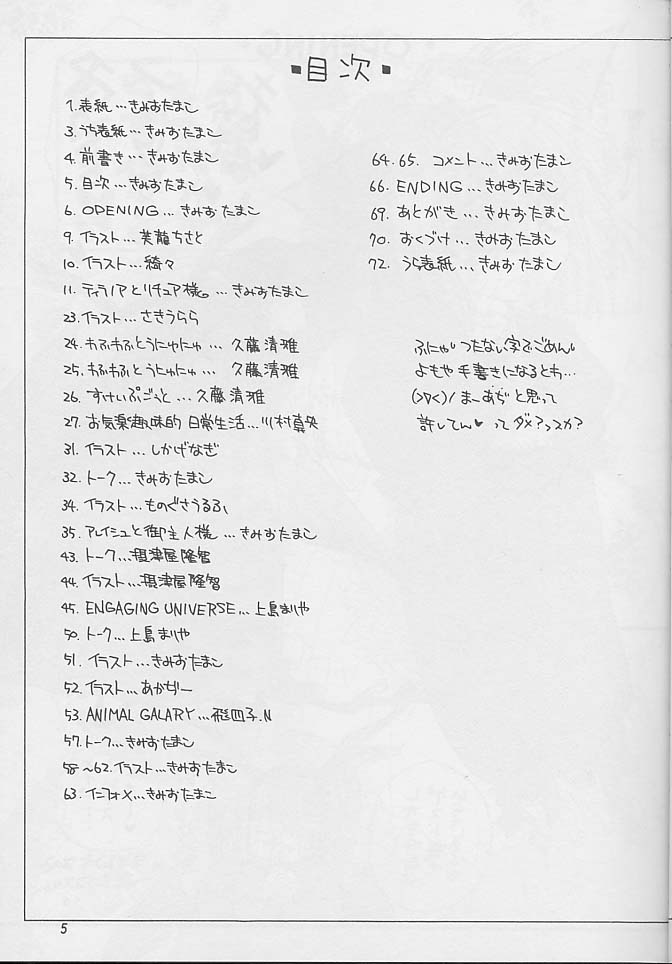 ▪目次▪
1. 表紙…きみおたまこ
3. うら表紙…きみおたまこ
4. 前書き…きみおたまこ
5. 目次…きみおたまこ
6. OPENING…きみおたまこ
9. イラスト…芙龍ちさと
10. イラスト…綺々
11. ティラノアとリチュア様。…きみおたまこ
23. イラスト…さきうらら
24. わふわふとうにゅにゅ…久藤清雅
25. わふわふとうにゅにゅ…久藤清雅
26. すけいぷごっと…久藤清雅
27. お気楽趣味的日常生活…川村真央
31. イラスト…しかげなぎ
32. トーク…きみおたまこ
34. イラスト…ものぐさうるふ
35. アレイシュと御主人様…きみおたまこ
43. トーク…摂津屋隆智
44. イラスト…摂津屋隆智
45. ENGAGING UNIVERSE…上島まりや
50. トーク…上島まりや
51. イラスト…きみおたまこ
52. イラスト…あかぢー
53. ANIMAL GALARY…飛四子.N
57. トーク…きみおたまこ
58~62. イラスト…きみおたまこ
63. インフォメ…きみおたまこ
64.65. コメント…きみおたまこ
66. ENDING…きみおたまこ
69. あとがき…きみおたまこ
70. おくづけ…きみおたまこ
72. うら表紙…きみおたまこ
ふにゃ つたない字でごめん
よもや手書きになるとわ…
まーあぢと思って
許してん♥ってダメ?っスか?
5